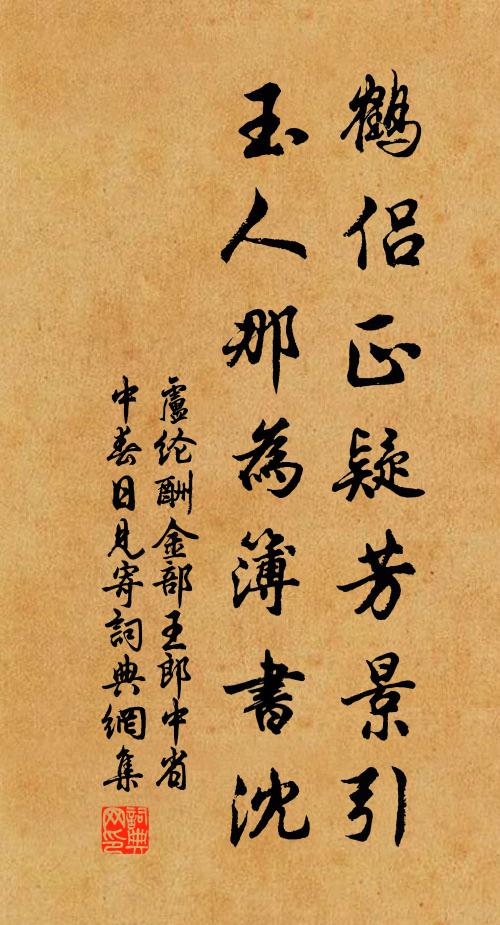 鶴侶正疑芳景引
玉人那為簿書沈
盧纶酬金部王郎中省
中春日見寄詞典網集
詞典网印